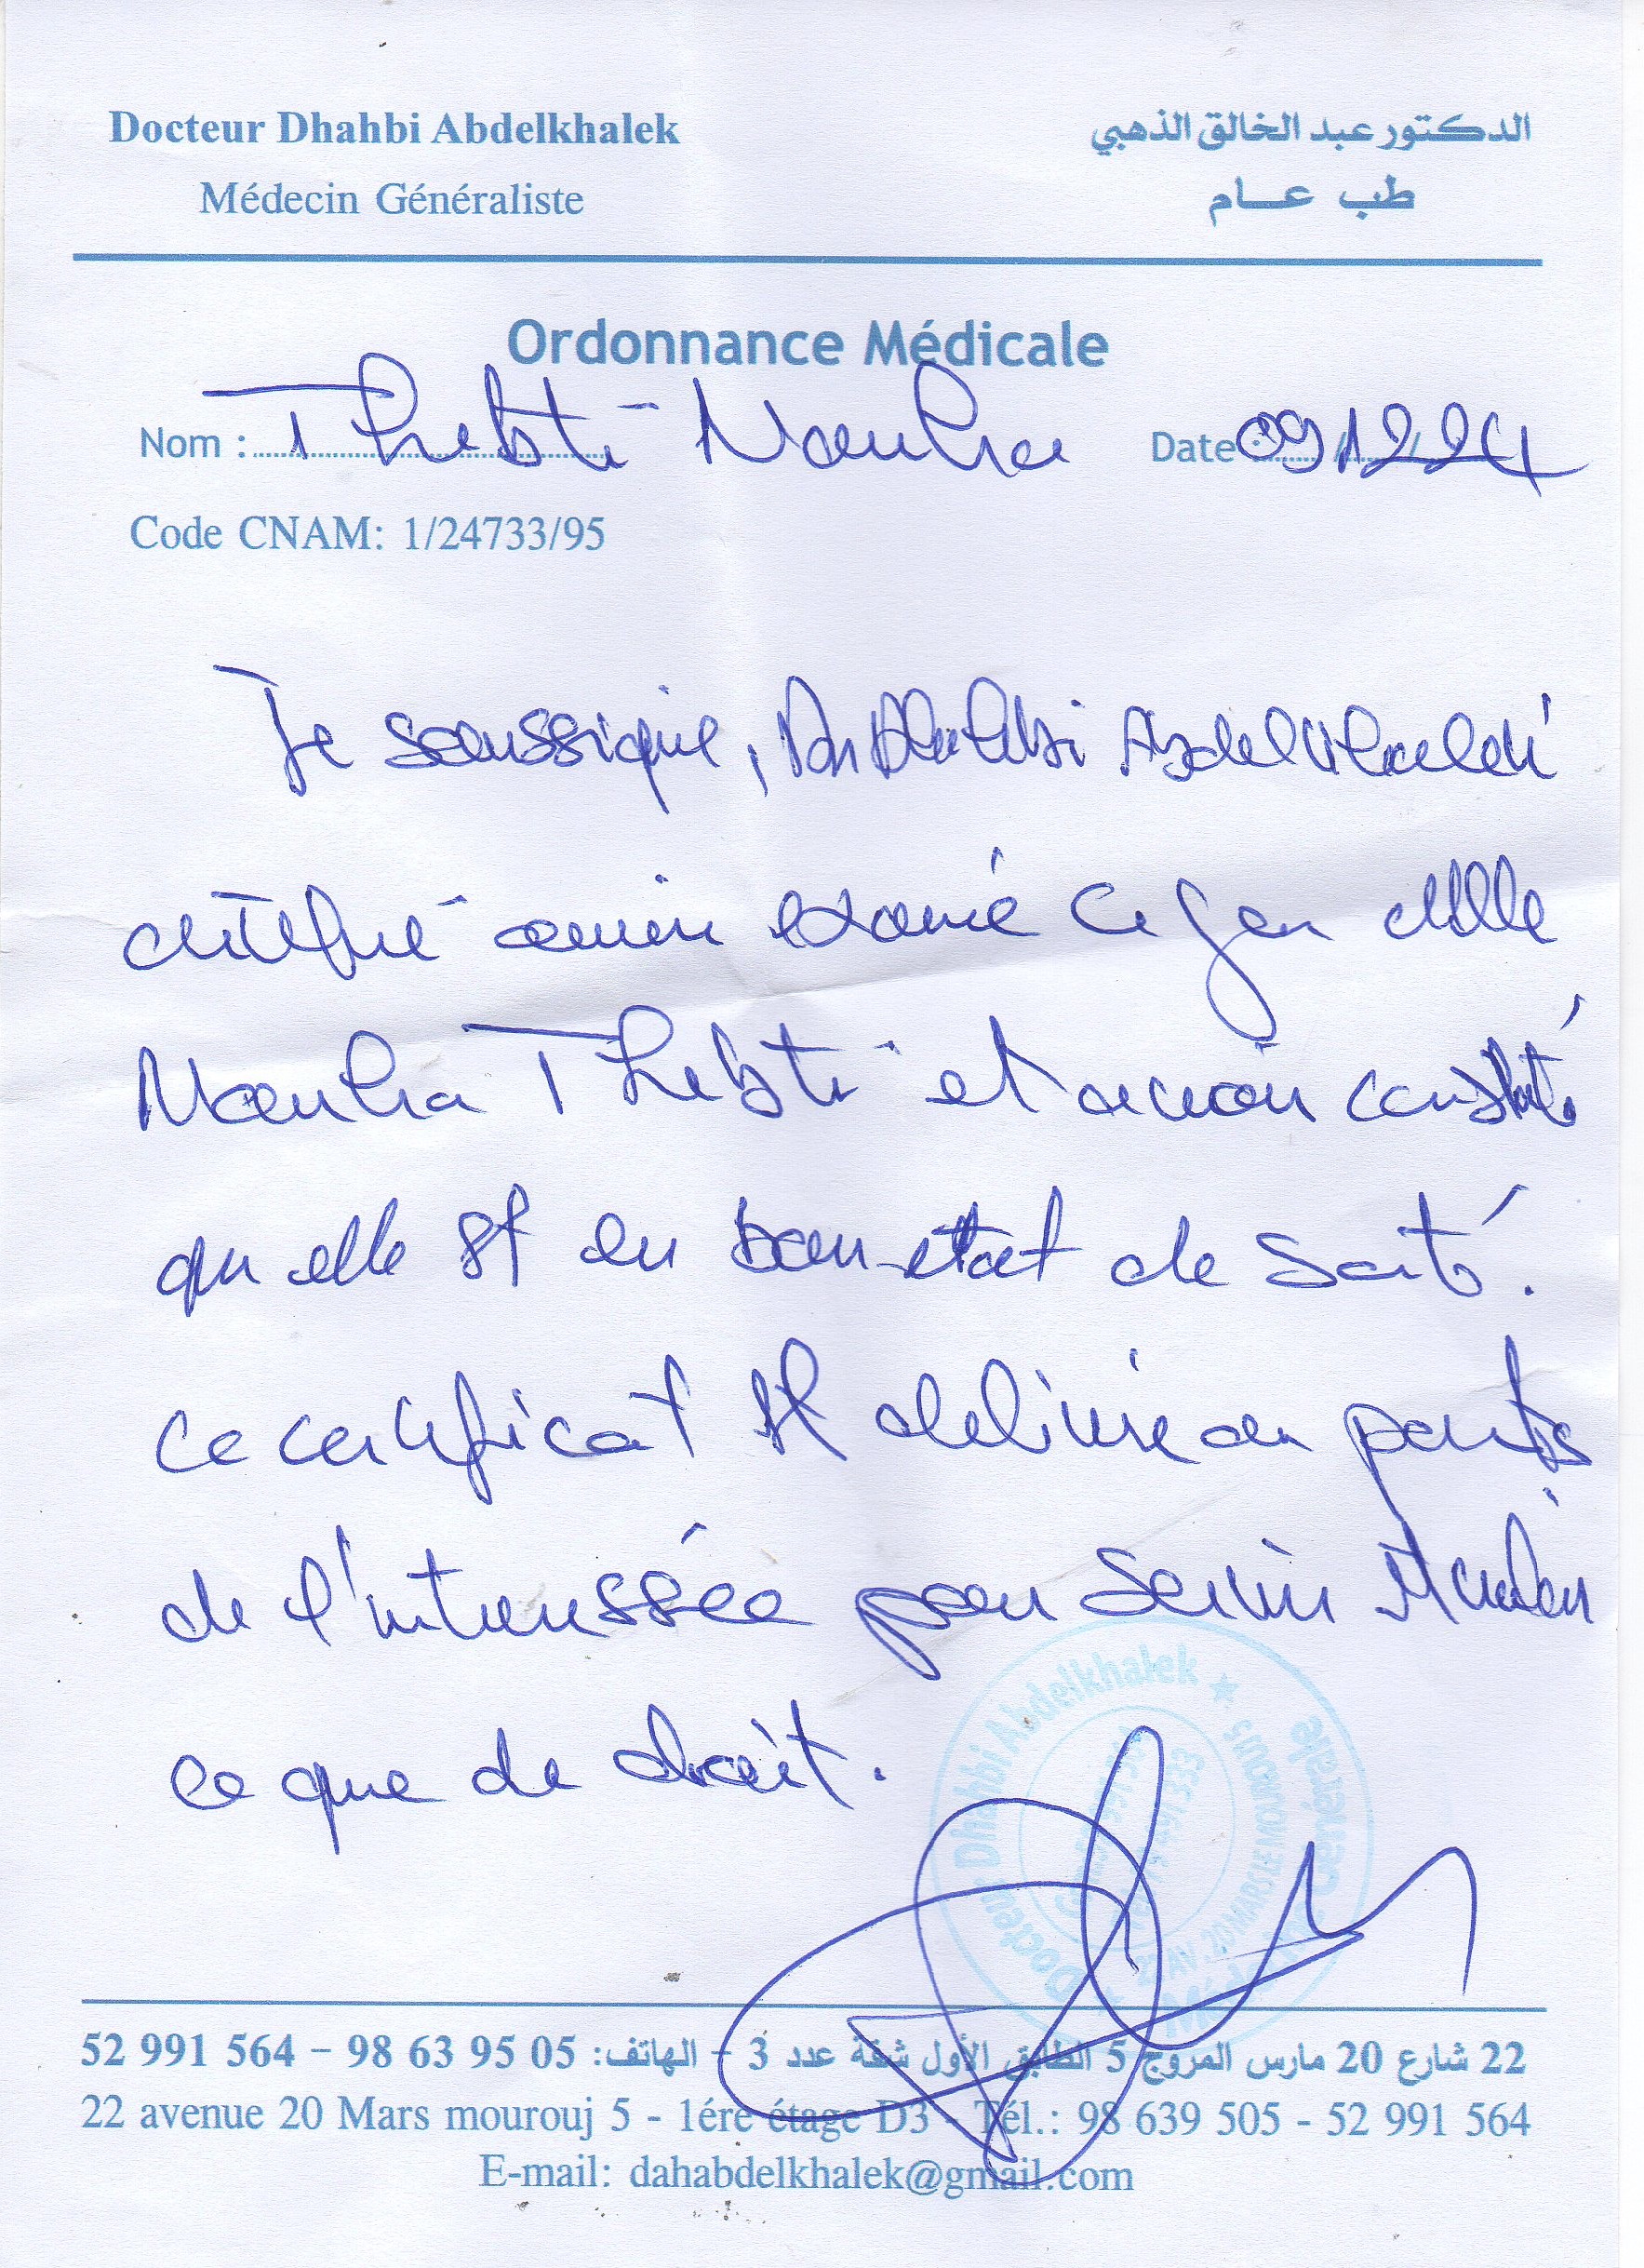 Docteur Dhahbi Abdelkhalek
الدكتور عبد الخالق الذهبي
Médecin Généraliste
طب عام
Ordonnance Médicale
Nom : Thebti Nouha Date : 09/12/24
Code CNAM: 1/24733/95
Je soussigné, Dr Dhahbi Abdelkhalek
certifie avoir examiné ce jour Melle
Nouha Thebti et avoir constaté
qu'elle est en bon état de santé.
ce certificat est délivré en
de l'interessée pour servir
ce que de droit.
Docteur Dhahbi Abdelkhalek ★
22 AV. 20 MARS ELMOUROUJ 5
22 شارع 20 مارس المروج 5 الطابق الأول شقة عدد 3 - الهاتف: 05 95 63 98 – 564 991 52
22 avenue 20 Mars mourouj 5 - 1ére étage D3 - Tél.: 98 639 505 - 52 991 564
E-mail: dahabdelkhalek@gmail.com